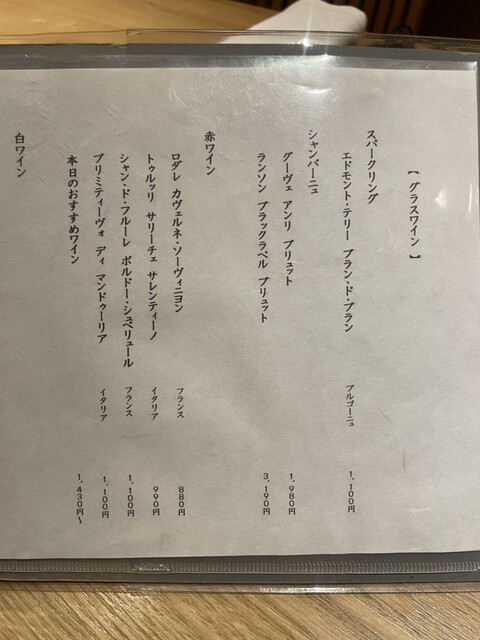 【グラスワイン】
スパークリング
エドモント・テリー ブラン・ド・ブラン ブルゴーニュ 1,100円
シャンパーニュ
グーヴェ アンリ ブリュット 1,980円
ランソン ブラックラベル ブリュット 3,190円
赤ワイン
ロダレ カヴェルネ・ソーヴィニヨン フランス 880円
トゥルッリ サリーチェ サレンティーノ イタリア 990円
シャン・ド・フルーレ ボルドー・シュペリュール フランス 1,100円
プリミティーヴォ ディ マンドゥーリア イタリア 1,100円
本日のおすすめワイン 1,430円~
白ワイン